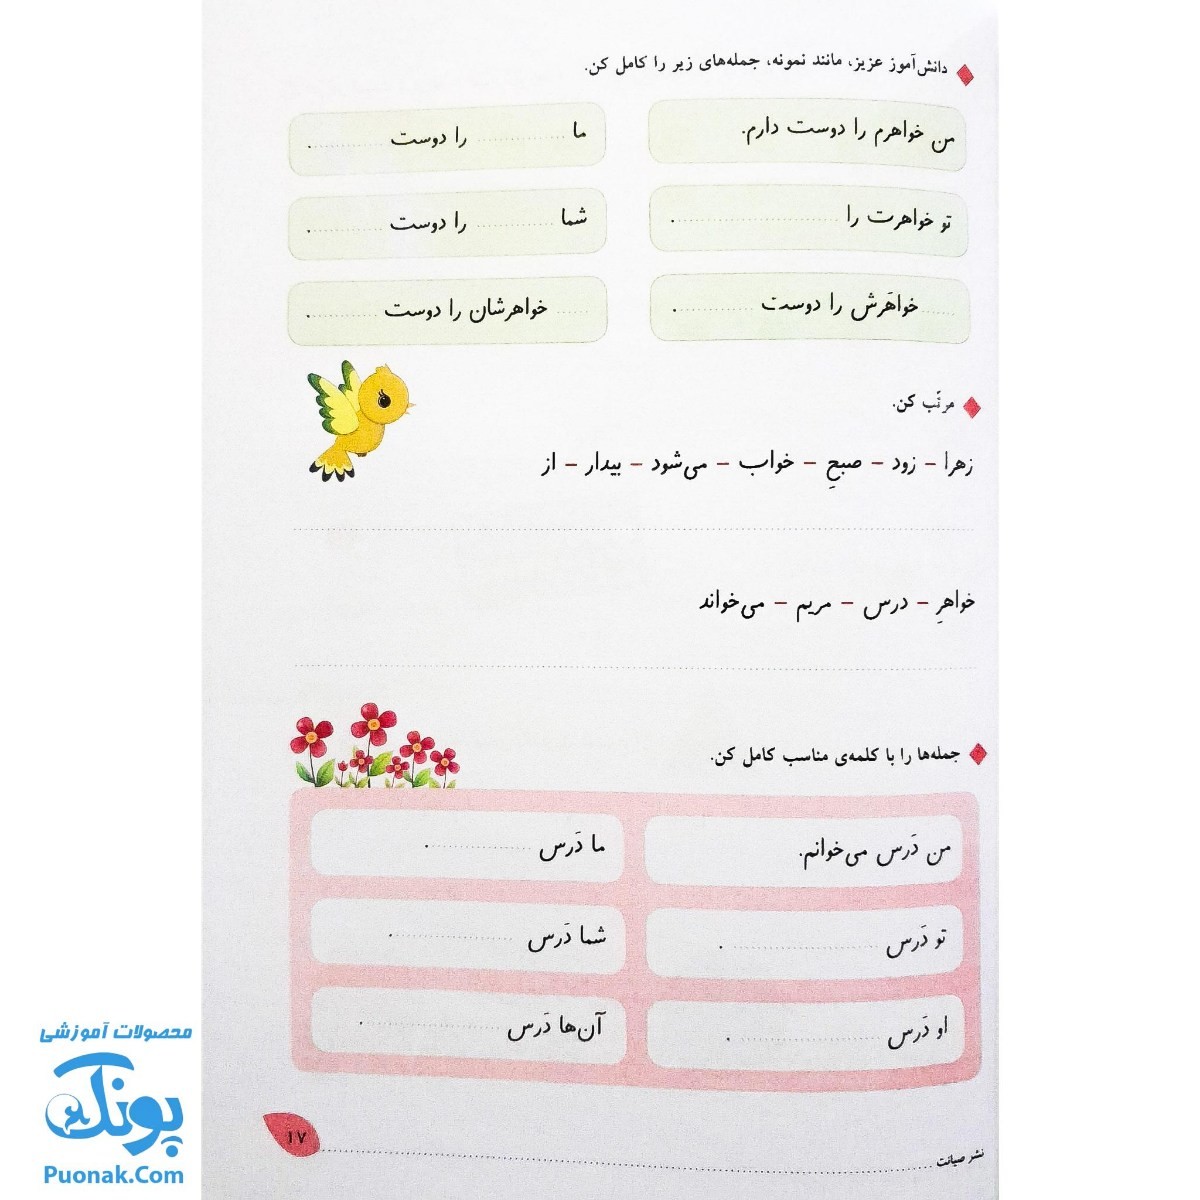 دانش‌آموز عزیز، مانند نمونه، جمله‌های زیر را کامل کن.
من خواهرم را دوست دارم.
ما ............ را دوست ............ .
تو خواهرت را ............ .
شما ............ را دوست ............ .
...... خواهَرش را دوست ............ .
...... خواهرشان را دوست ............ .
مرتّب کن.
زهرا – زود – صبحِ – خواب – می‌شود – بیدار – از
خواهرِ – درس – مریم – می‌خواند
جمله‌ها را با کلمه‌ی مناسب کامل کن.
من دَرس می‌خوانم.
ما دَرس ............ .
تو دَرس ............ .
شما دَرس ............ .
او دَرس ............ .
آن‌ها دَرس ............ .
نشر صیانت
۱۷
محصولات آموزشی
پونک
Puonak.Com